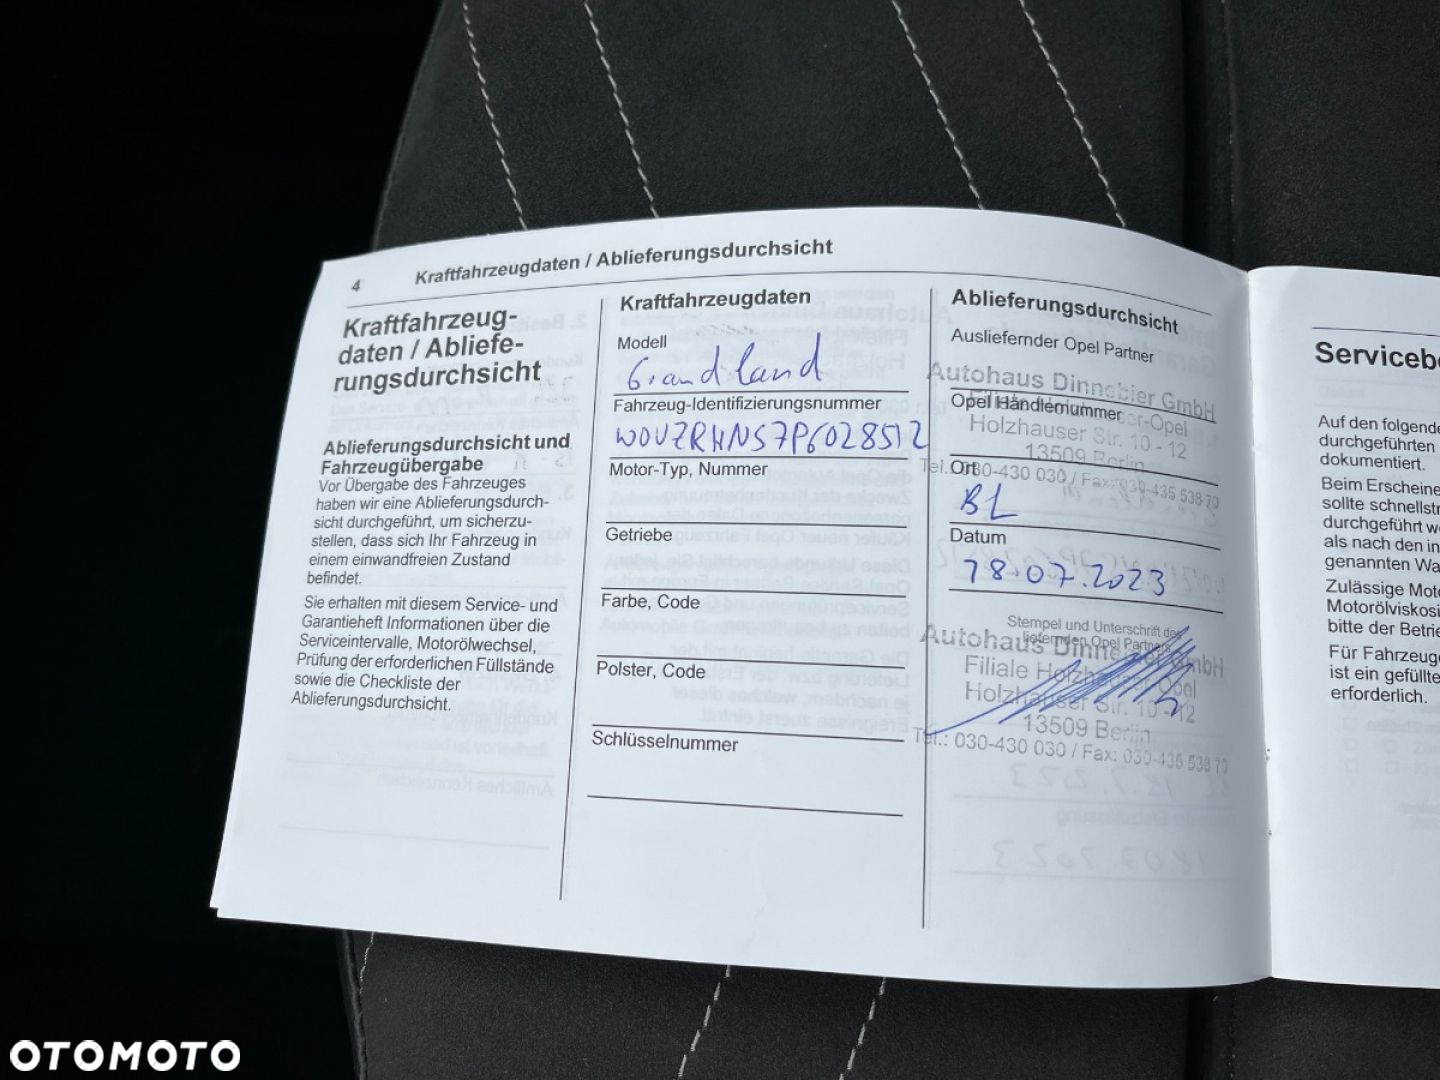 4
Kraftfahrzeugdaten / Ablieferungsdurchsicht
Kraftfahrzeug-
daten / Abliefe-
rungsdurchsicht
Ablieferungsdurchsicht und
Fahrzeugübergabe
Vor Übergabe des Fahrzeuges
haben wir eine Ablieferungsdurch-
sicht durchgeführt, um sicherzu-
stellen, dass sich Ihr Fahrzeug in
einem einwandfreien Zustand
befindet.
Sie erhalten mit diesem Service- und
Garantieheft Informationen über die
Serviceintervalle, Motorölwechsel,
Prüfung der erforderlichen Füllstände
sowie die Checkliste der
Ablieferungsdurchsicht.
Kraftfahrzeugdaten
Modell
Grandland
Fahrzeug-Identifizierungsnummer
W0VZRHNS7P6028512
Motor-Typ, Nummer
Getriebe
Farbe, Code
Polster, Code
Schlüsselnummer
Ablieferungsdurchsicht
Ausliefernder Opel Partner
Autohaus Dinnebier GmbH
Opel Händlernummer
Holzhauser Str. 10 - 12
13509 Berlin
Tel.: 030-430 030 / Fax: 030-435 538 70
Ort
BL
Datum
18.07.2023
Stempel und Unterschrift des
liefernden Opel Partners
Autohaus Dinnebier GmbH
Filiale Holzhauser-Opel
Holzhauser Str. 10 - 12
13509 Berlin
Tel.: 030-430 030 / Fax: 030-435 538 70
Auf den folgende
durchgeführten
dokumentiert.
Beim Erscheine
sollte schnellst
durchgeführt we
als nach den in
genannten Wa
Zulässige Moto
Motorölviskosi
bitte der Betrie
Für Fahrzeuge
ist ein gefüllte
erforderlich.
OTOMOTO